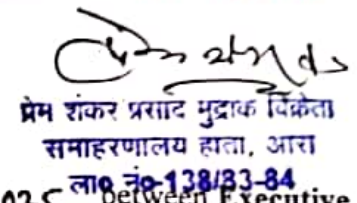 प्रेम शंकर प्रसाद मुद्रांक विक्रेता
समाहरणालय हाता, आरा
ला० नं०-138/83-84
between Executive